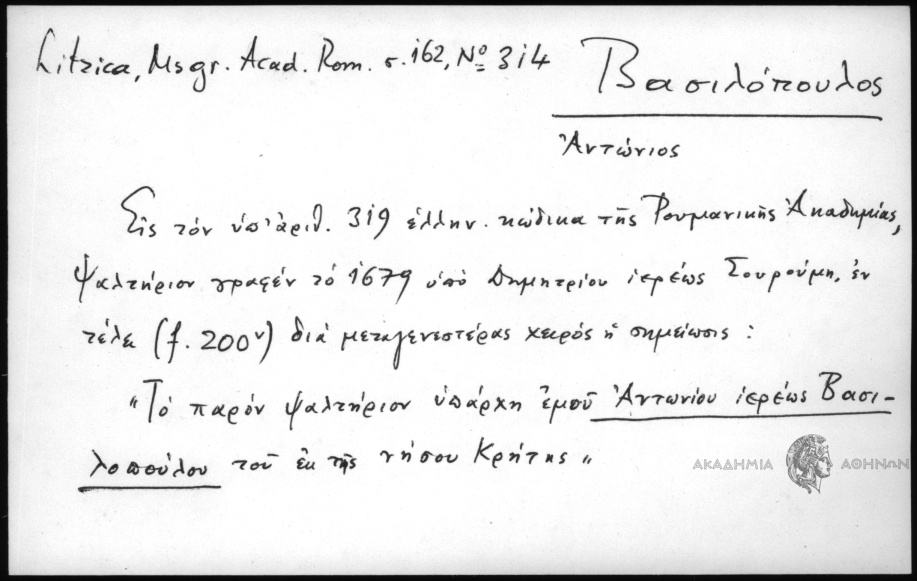 Litzica, Msgr. Acad. Rom. σ. 162, Nº 314
Βασιλόπουλος
Ἀντώνιος
Εἰς τὸν ὑπ' ἀριθ. 319 ἑλλην. κώδικα τῆς Ρουμανικῆς Ἀκαδημίας,
ψαλτήριον γραφέν τὸ 1679 ὑπὸ Δημητρίου ἱερέως Σουρούμη, ἐν
τέλει (f. 200ᵛ) διὰ μεταγενεστέρας χειρός ἡ σημείωσις :
"Τὸ παρὸν ψαλτήριον ὑπάρχη ἐμοῦ Ἀντωνίου ἱερέως Βασι-
λοπούλου τοῦ ἐκ τῆς νήσου Κρήτης"
ΑΚΑΔΗΜΙΑ ΑΘΗΝΩΝ